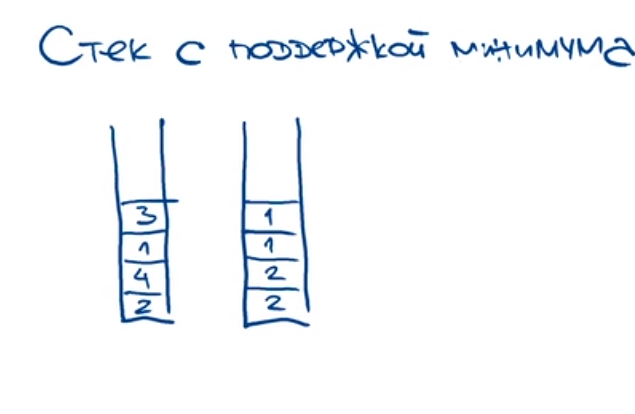 Стек с поддержкой минимума
3 1
1 1
4 2
2 2